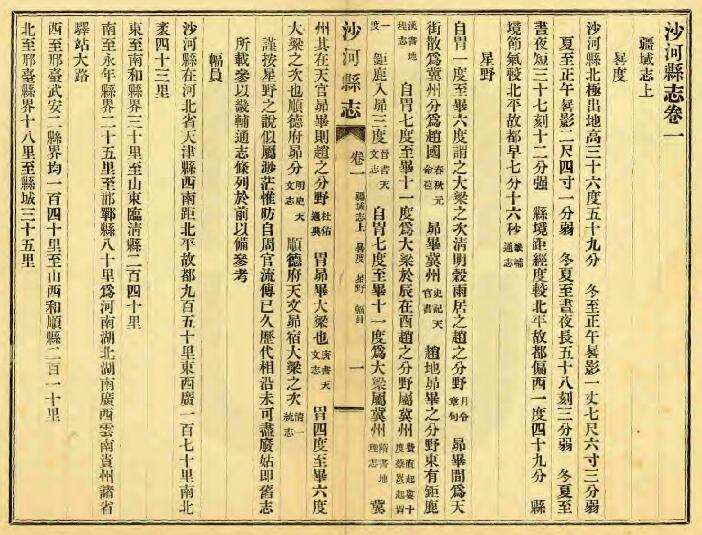 沙河縣志卷一
疆域志上
晷度
沙河縣北極出地高三十六度五十九分　冬至正午晷影一丈七尺六寸三分弱
夏至正午晷影二尺四寸一分弱　冬夏至晝夜長五十八刻三分弱　冬夏至
晝夜短三十七刻十二分强　縣境距經度較北平故都偏西一度四十九分　縣
境節氣較北平故都早七分十六秒畿輔通志
星野
自胃一度至畢六度謂之大梁之次清明穀雨居之趙之分野月令章句　昴畢間爲天
街散爲冀州分爲趙國春秋元命苞　昴畢冀州史記天官書　趙地昴畢之分野東有鉅鹿
漢書地理志　自胃七度至畢十一度爲大梁於辰在酉趙之分野屬冀州費直起婁十度蔡邕起胃
一度　鉅鹿入昴三度晉書天文志　自胃七度至畢十一度爲大梁屬冀州隋書地理志　冀
沙河縣志　卷一　疆域志上　晷度　星野　幅員　一
州其在天官昴畢則趙之分野杜佑通典　胃昴畢大梁也唐書天文志　胃四度至畢六度
大梁之次也順德府昴分明史天文志　順德府天文昴宿大梁之次清一統志
謹按星野之說似屬渺茫惟昉自周官流傳已久歷代相沿未可盡廢姑即舊志
所載參以畿輔通志條列於前以備參考
幅員
沙河縣在河北省天津縣西南距北平故都九百五十里東西廣一百七十里南北
袤四十三里
東至南和縣界三十里至山東臨淸縣二百四十里
南至永年縣界二十五里至邯鄲縣八十里爲河南湖北湖南廣西雲南貴州諸省
驛站大路
西至邢臺武安二縣界均一百四十里至山西和順縣二百一十里
北至邢臺縣界十八里至縣城三十五里